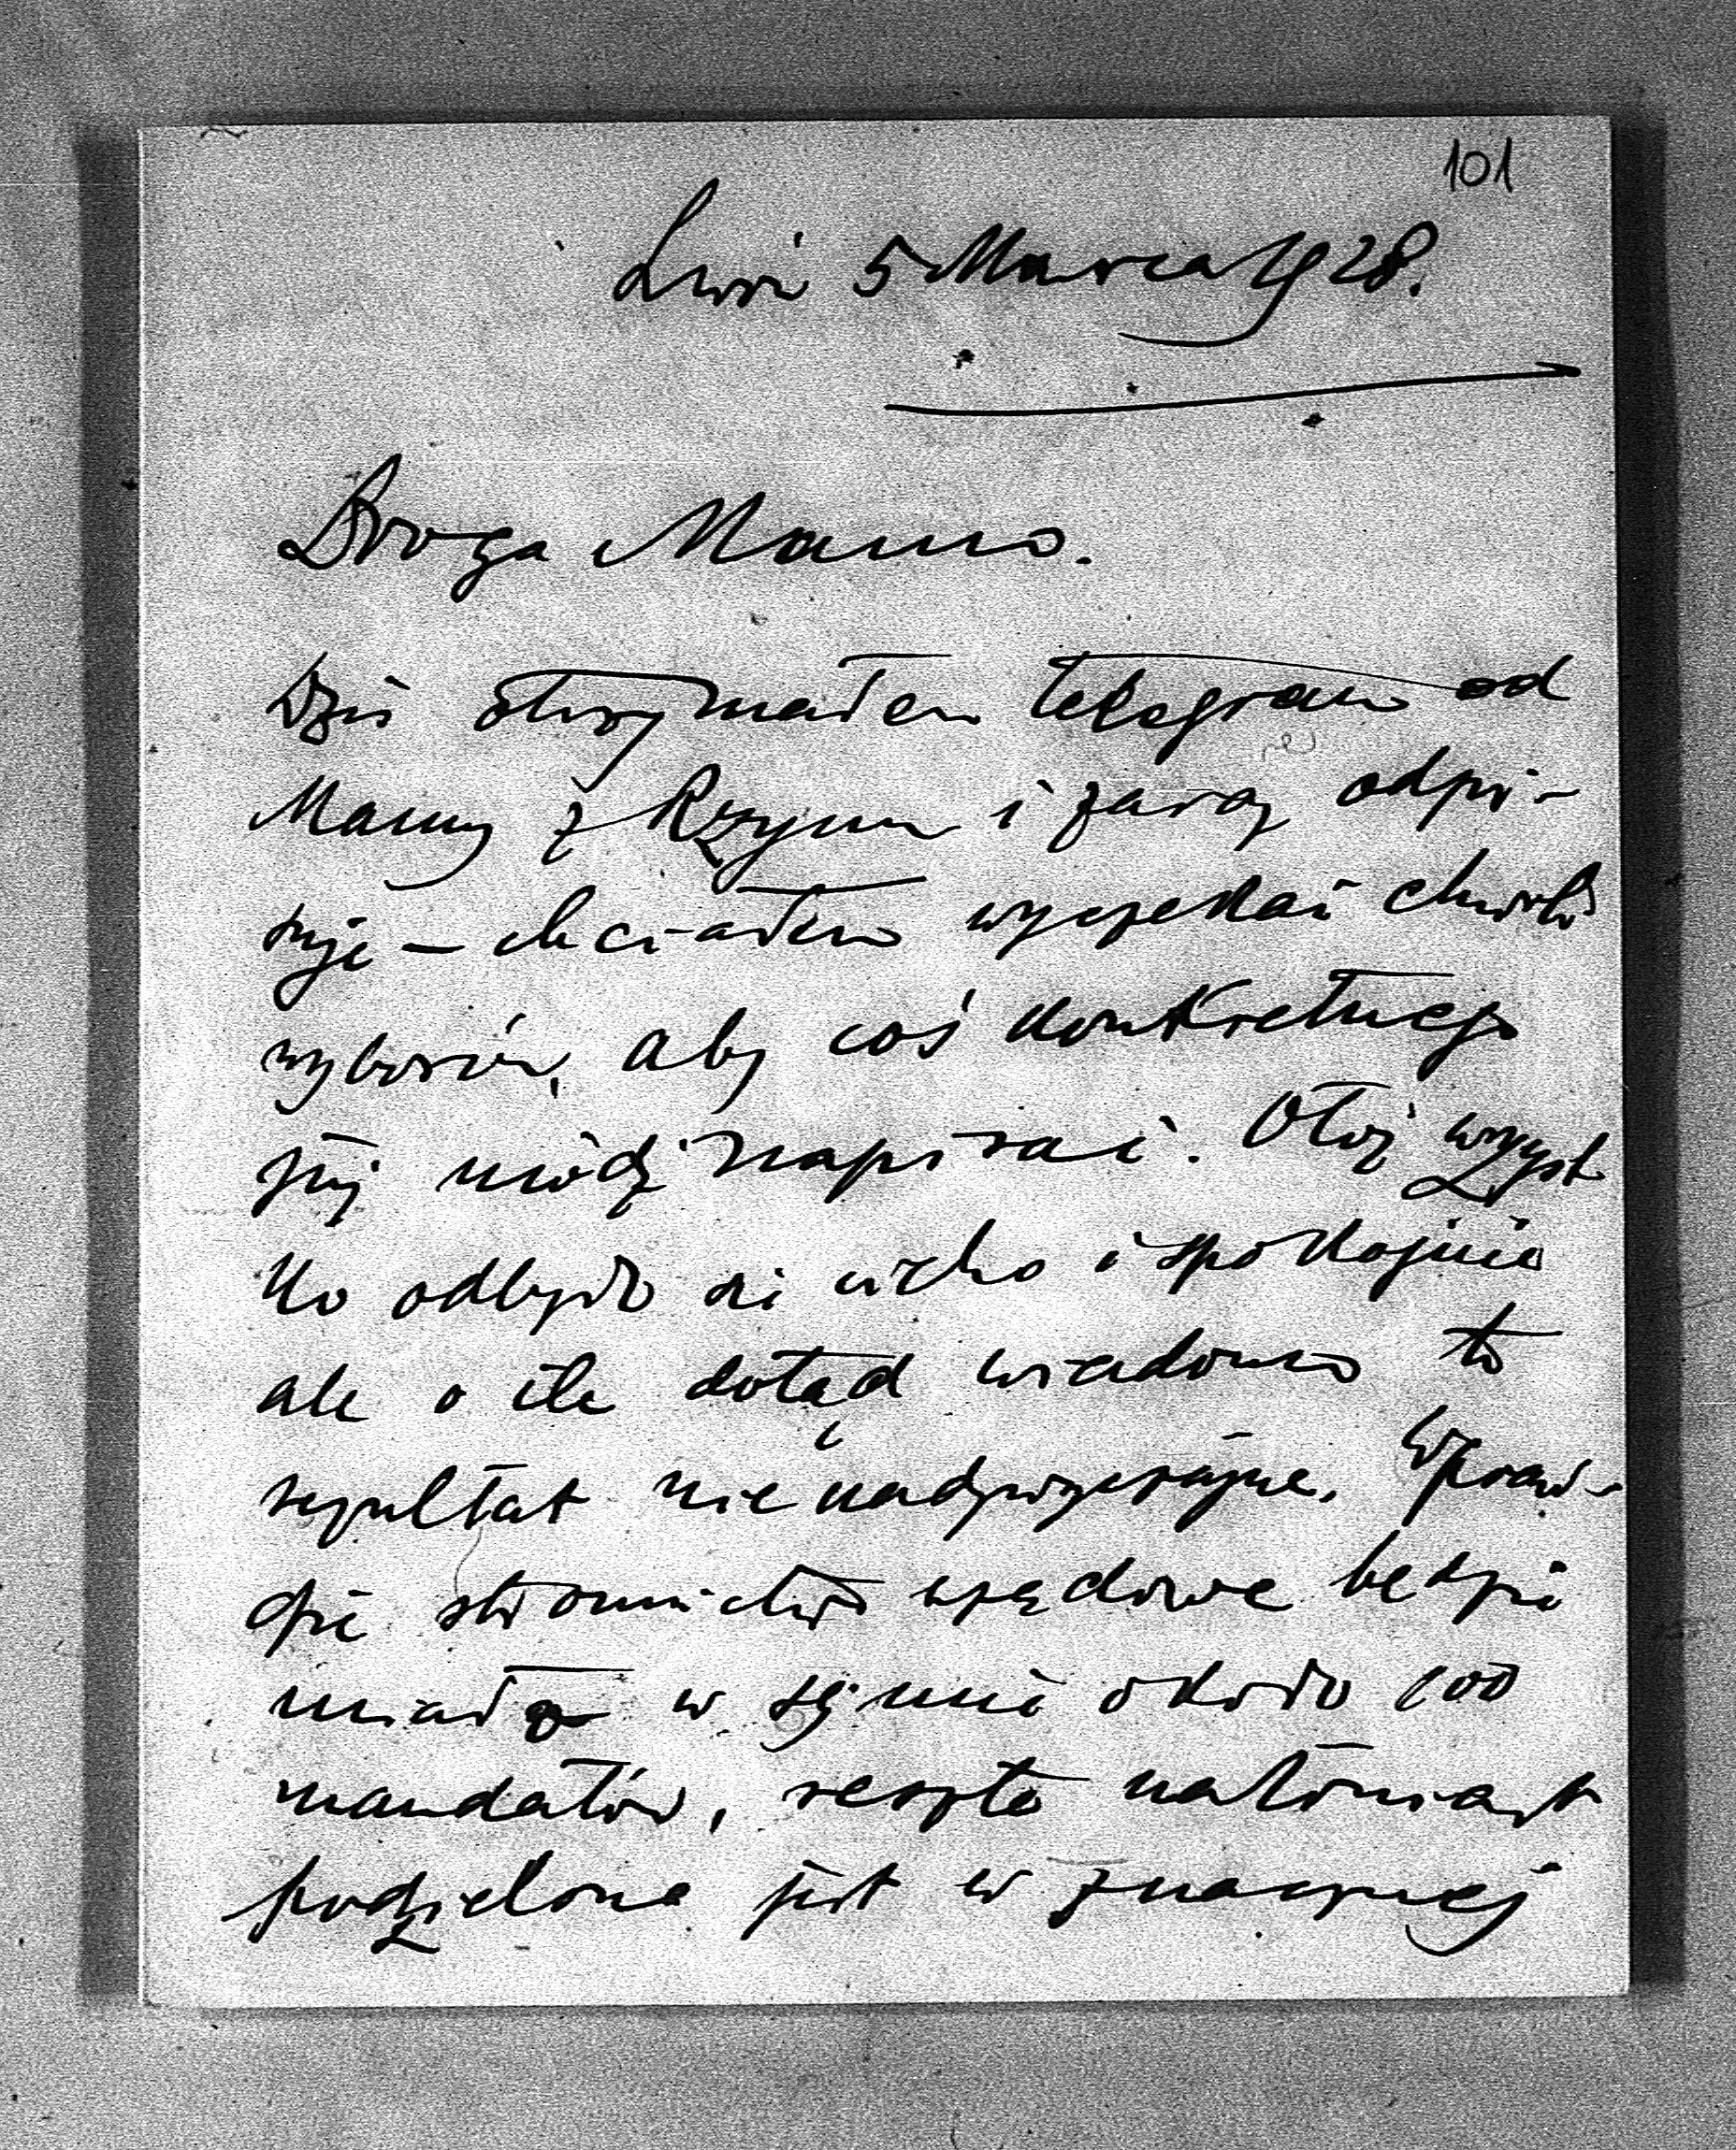 101
Lwów 5 Marca 1928.
Droga Mamo.
Dziś otrzymałem telegram od
Mamy z Rzymu i zaraz odpi-
suję – chciałem wyczekać chwili
wyborów, aby coś konkretnego
już módz napisać. Otóż wszyst
ko odbyło się cicho i spokojnie
ale o ile dotąd wiadomo to
rezultat nie nadzwyczajne. Wpraw-
dzie stronnictwo rządowe będzie
miało w sejmie około 100
mandatów, reszta natomiast
podzielona jest w znacznej